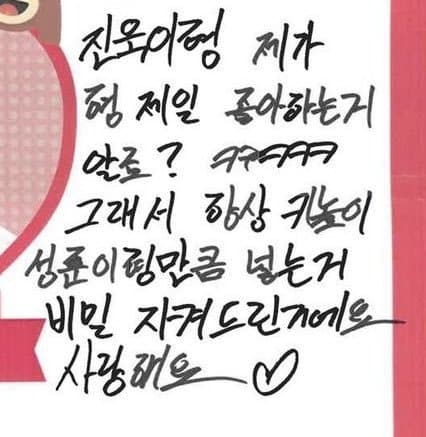 진욱이형 제가
형 제일 좋아하는거
알죠? ㅋㅋㅋㅋㅋ
그래서 항상 키높이
성준이형만큼 넣는거
비밀 지켜드린거에요
사랑해요 ♡